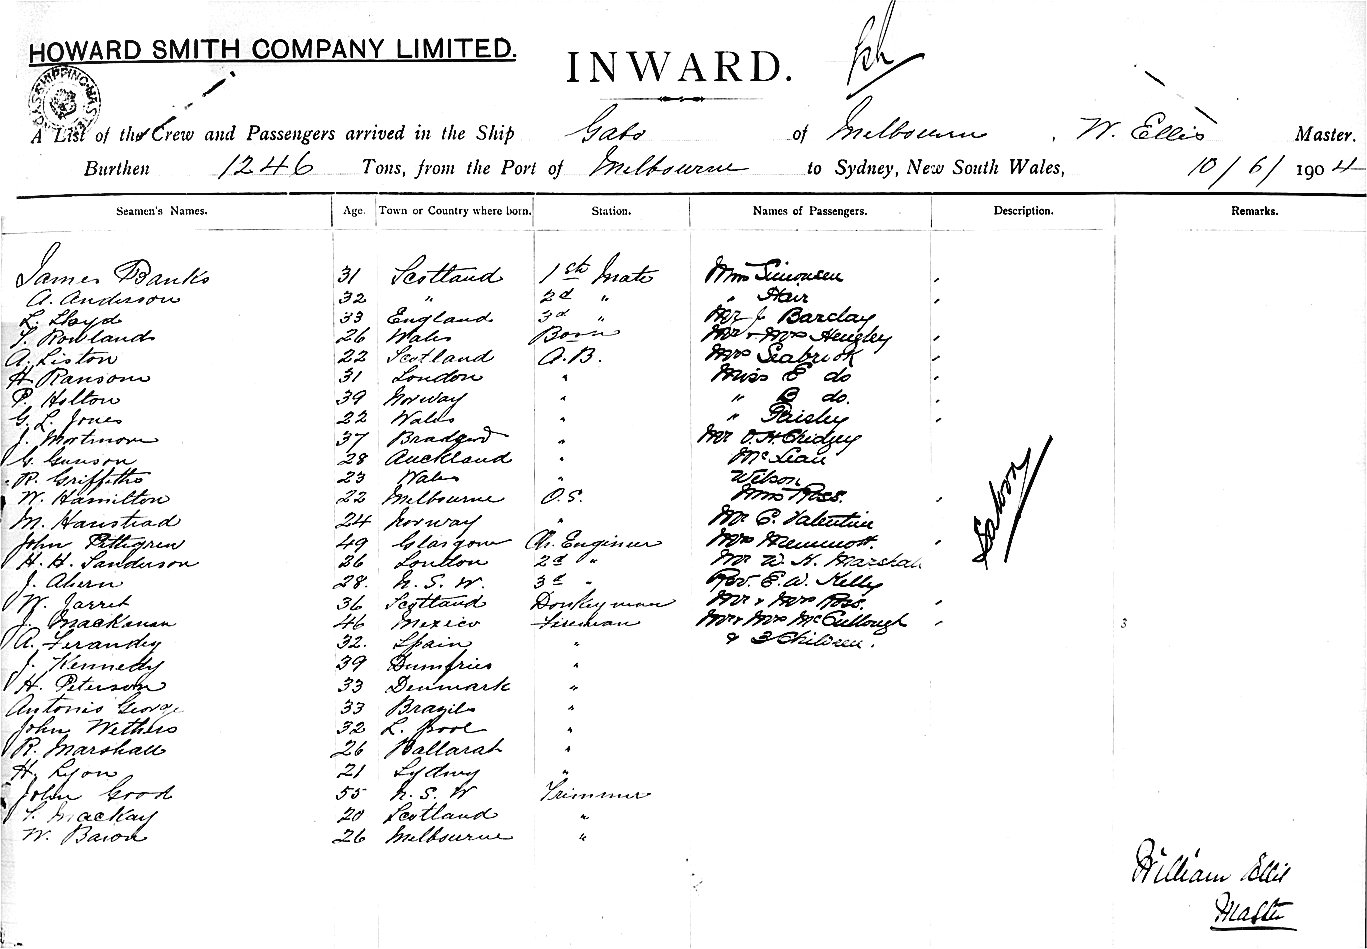 HOWARD SMITH COMPANY LIMITED.
INWARD.
SHIPPING MASTER
A List of the Crew and Passengers arrived in the Ship Gabo of Melbourne, W. Ellis Master.
Burthen 1246 Tons, from the Port of Melbourne to Sydney, New South Wales, 10/6/1904
Seamen's Names. Age. Town or Country where born. Station. Names of Passengers. Description. Remarks.
James Banks 31 Scotland 1st Mate Mrs Simonsen
A. Anderson 32 " 2d " " Hair
L. Lloyd 33 England 3d " Mr J Barclay
T. Rowland 26 Wales Bosn Mr & Mrs Hengley
A. Liston 22 Scotland A.B. Mrs Seabrook
H. Ransom 31 London " Miss E do
P. Holton 39 Norway " " C do.
G. L. Jones 22 Wales " " Paisley
J. Mortimore 37 Bradford " Mr O. H. Cridgey
G. Gunson 28 Auckland " McLean
R. Griffiths 23 Wales " Wilson
W. Hamilton 22 Melbourne O.S. Mrs Ross.
M. Hanstead 24 Norway " Mr C. Valentine
John Pettigren 49 Glasgow Ch. Engineer Mrs Hemmott.
H. H. Sanderson 26 London 2d " Mr W. K. Marshall
J. Ahern 28. N. S. W. 3d " Rev. E. W. Kelly
W. Jarret 36 Scotland Donkeyman Mr & Mrs Ross.
J. Mackeman 46 Mexico Fireman Mr & Mrs McCullough 3
A. Ferandey 32. Spain " & 3 Children.
J. Kennedy 39 Dumfries "
H. Peterson 33 Denmark "
Antonio George 33 Brazils "
John Withers 32 L. pool "
R. Marshall 26 Ballarat "
H. Lyon 21 Sydney "
John Good 55 N. S. W Trimmer
T. MacKay 20 Scotland "
W. Baron 26 Melbourne "
Saloon
William Ellis
Master